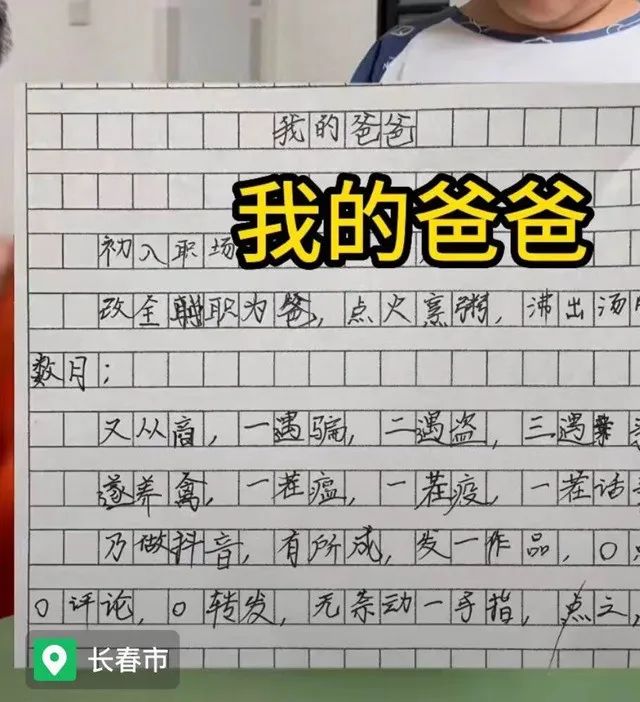 我的爸爸
我的爸爸
初入职场
改全职为爸，点火烹粥，沸出汤
数月；
又从畜，一遇骗，二遇盗，三遇
遂养禽，一茬瘟，一茬疫，一茬话
乃做抖音，有所成，发一作品，0
0评论，0转发，无奈动一手指，点之，
长春市